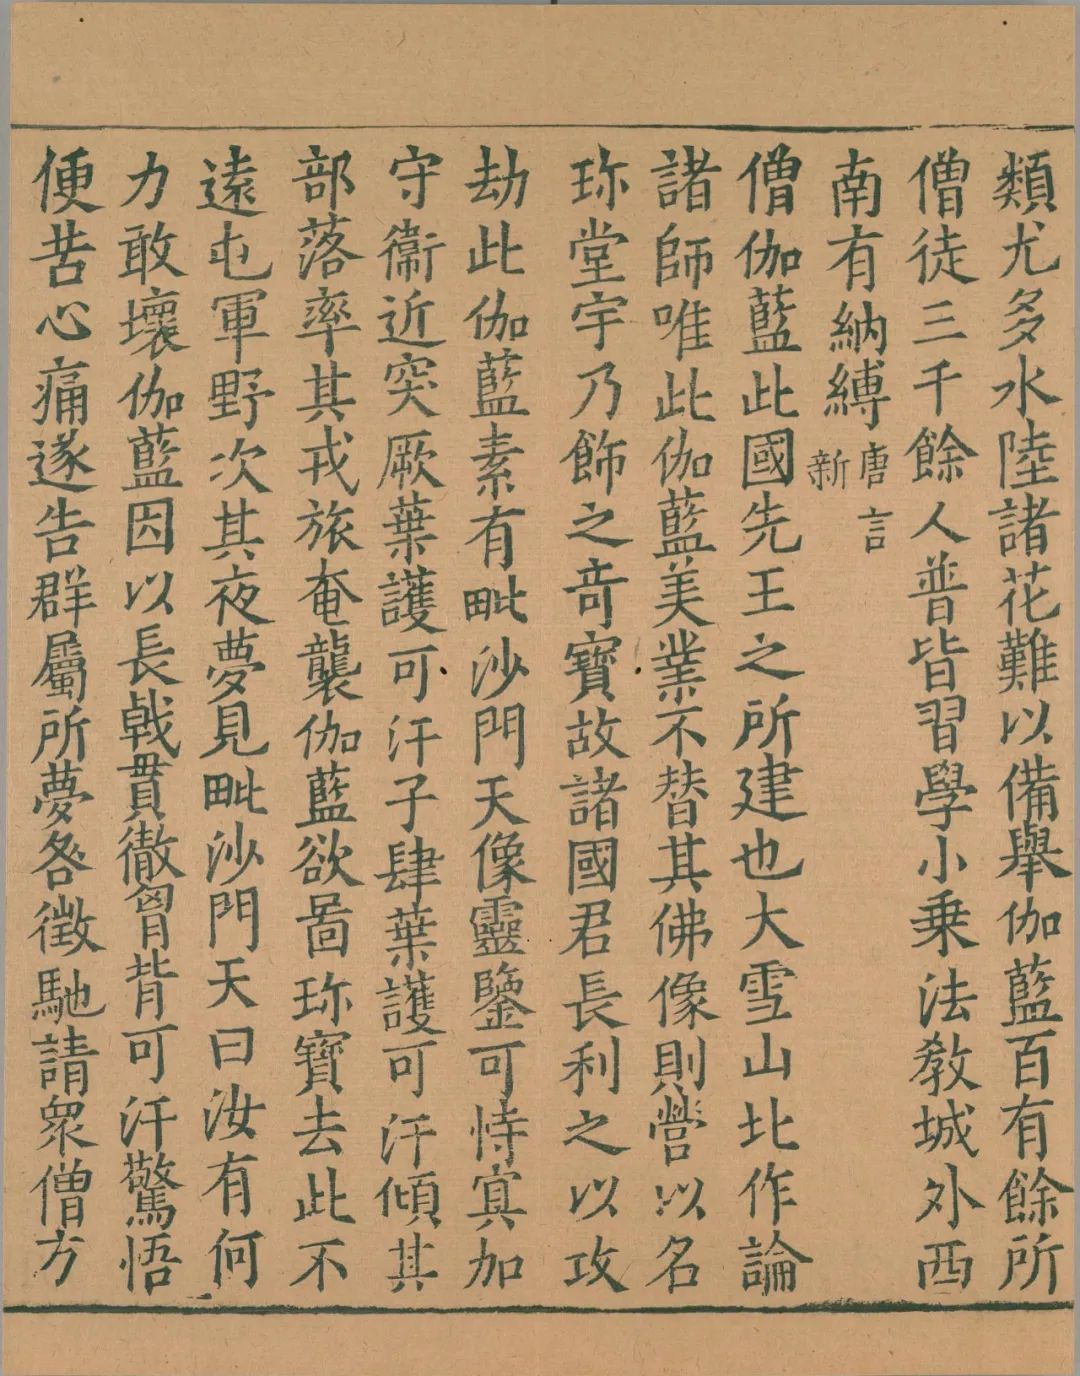 類尤多水陸諸花難以備舉伽藍百有餘所
僧徒三千餘人普皆習學小乗法教城外西
南有納縛唐言新
僧伽藍此國先王之所建也大雪山北作論
諸師唯此伽藍美業不替其佛像則營以名
珎堂宇乃飾之竒寶故諸國君長利之以攻
劫此伽藍素有毗沙門天像靈鑒可恃冥加
守衞近突厥葉護可汗子肆葉護可汗傾其
部落率其戎旅奄襲伽藍欲啚珎寶去此不
遠屯軍野次其夜夢見毗沙門天曰汝有何
力敢壞伽藍因以長戟貫徹胷背可汗驚悟
便苦心痛遂告群屬所夢咎徵馳請衆僧方